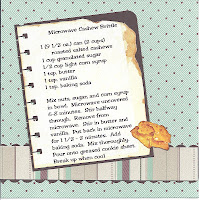 Microwave Cashew Brittle
1 (9 1/2 oz.) can (2 cups)
roasted salted cashews
1 cup granulated sugar
1/2 cup light corn syrup
1 tsp. butter
1 tsp. vanilla
1 tsp. baking soda
Mix nuts, sugar, and corn syrup
in bowl. Microwave uncovered
6-8 minutes. Stir halfway
through. Remove from
microwave. Stir in butter and
vanilla. Put back in microwave
for 1 1/2 - 2 minutes. Add
baking soda. Mix thoroughly.
Pour onto greased cookie sheet.
Break up when cool.